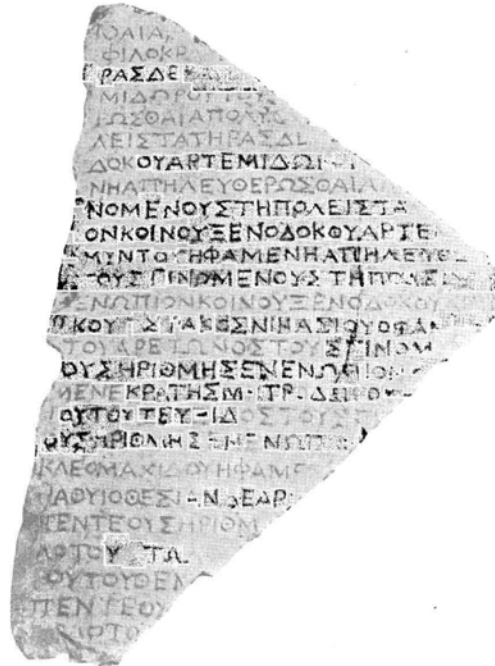 ΙΘΑΙΑ
ΦΙΛΟΚΡ
ΡΑΣΔΕ
ΜΙΔΩΡΟΥΤΟΥΣ
ΡΩΣΘΑΙΑΠΟΛΥΣ
ΛΕΙΣΤΑΤΗΡΑΣΔΕ
ΔΟΚΟΥΑΡΤΕΜΙΔΩΡ
ΝΗΑΠΗΛΕΥΘΕΡΩΣΘΑΙΑΠ
ΝΟΜΕΝΟΥΣΤΗΠΟΛΕΙΣΤΑ
ΟΝΚΟΙΝΟΥΞΕΝΟΔΟΚΟΥΑΡΤΕ
ΜΙΝΤΟΣΗΦΑΜΕΝΗΑΠΗΛΕΥΘΕ
ΤΟΥΣΓΙΝΟΜΕΝΟΥΣΤΗΠΟΛΕΙΣ
ΕΝΩΠΙΟΝΚΟΙΝΟΥΞΕΝΟΔΟΚΟΥ
ΝΙΚΑΣΙΟΥΟΦΑ
ΤΟΥΑΡΕΤΩΝΟΣΤΟΥΣΓΙΝΟΜ
ΟΥΣΗΡΙΘΜΗΣΕΝΕΝΩΠΙΟΝ
ΜΕΝΕΚΡΑΤΗΣΜΗΤΡΟΔΩΡΟΥ
ΙΟΥΤΟΥΤΕΥ ΙΔ ΟΣΤΟΥΣ
ΟΥΣΗΡΙΘΜΗΣΕΝΕΝΩΠ
ΚΛΕΟΜΑΧΙΔΟΥΗΦΑΜΕ
ΑΘΥΙΟΘΕΣΙΑΝΔΕΑΡ
ΠΕΝΤΕΟΥΣΗΡΙΘΜ
ΛΟΤΟΥ ΤΩ
ΟΥΤΟΥΘΕΜ
ΠΕΝΤΕΟΥ
ΙΟΤΟ